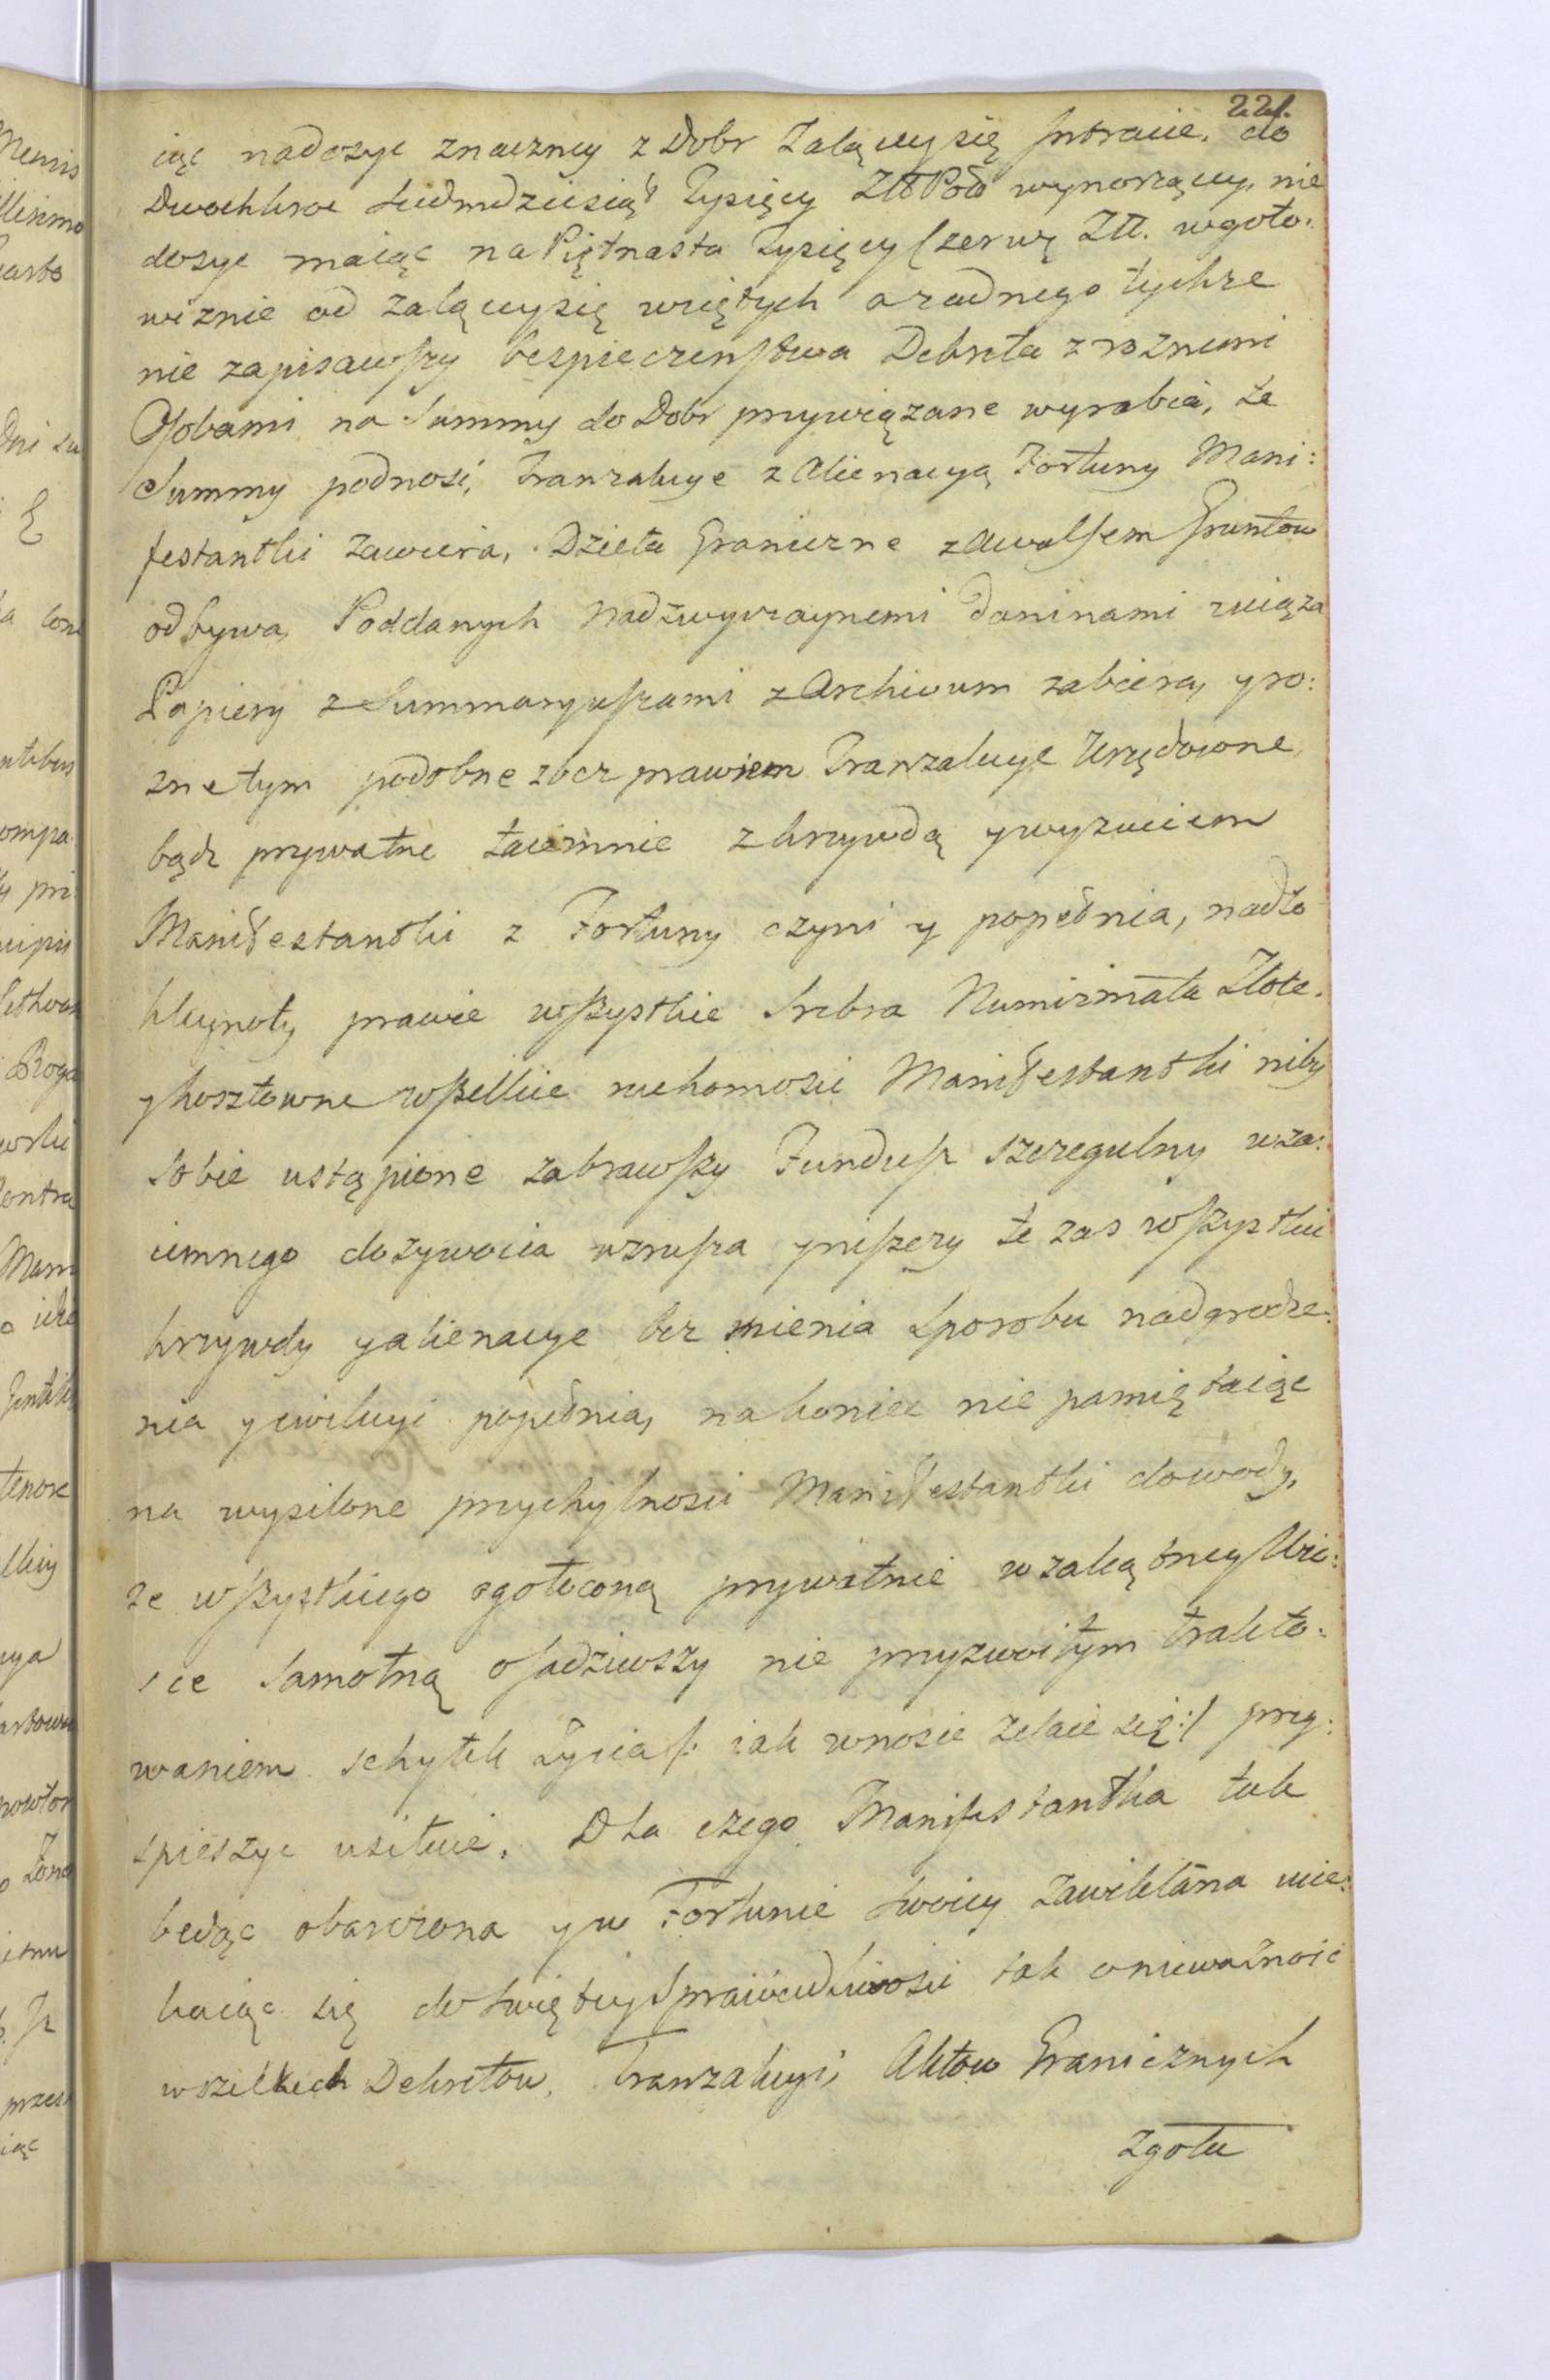 221.
iąc nadosyc znaczney z Dobr Żalącey się Jntracie, do
Dwochkroc siedmdziesiąt Tysięcy Złt Pol: wynoszącey, nie
dosyc maiąc na Piętnasta Tysięcy Czerwę Złł. wgoto:
wiznie od żalącey się wziętych a zadnego tychze
nie zapisawszy bespieczenstwa Dekreta z roznemi
Osobami na Summy do Dobr przywiązane wyrabia, te
Summy podnosi, tranzakcye z Alienacyą Fortuny Mani:
festantki zawiera, Dzieła Graniczne z Awulsem Gruntow
odbywa, Poddanych nadzwyczaynemi daninami zciąza
Papiery z Summaryuszami z Archiwum zabiera, y ro:
zne tym podobne zocz prawiem Tranzakcye Urzędowne,
bądz prywatne taiemnie z krzywdą y wyzuciem
Manifestantki z Fortuny czyni y popełnia, nadto
kleynoty prawie wszystkie Srebra Numizmata Złote,
y kosztowne wszelkie ruchomosci Manifestantki niby
sobie ustąpione zabrawszy Fundusz szczegulny wza:
iemnego dozywocia wzrusza y niszczy te zas wszystkie
krzywdy y alienacye bez mienia sposobu nadgrodze:
nia y ewikcyi popełnia, nakoniec nie pamiętaiąc
na wysilone przychylnosci Manifestantki dowody,
ze wszystkiego ogołoconą prywatnie w zakątney Wio:
sce samotną osadziwszy nie przyzwoitym trakto:
waniem schyłek życia /: iak wnosic zdaie się :/ przy:
spieszyc usiłuie. Dla czego Manifestantka tak
będąc obarczona y w Fortunie swoiey zawikłana ucie:
kaiąc się do swiętey sprawiedliwosci tak o nieważność
wszelkich Dekretow, Tranzakcyi, Aktow Granicznych
zgoła